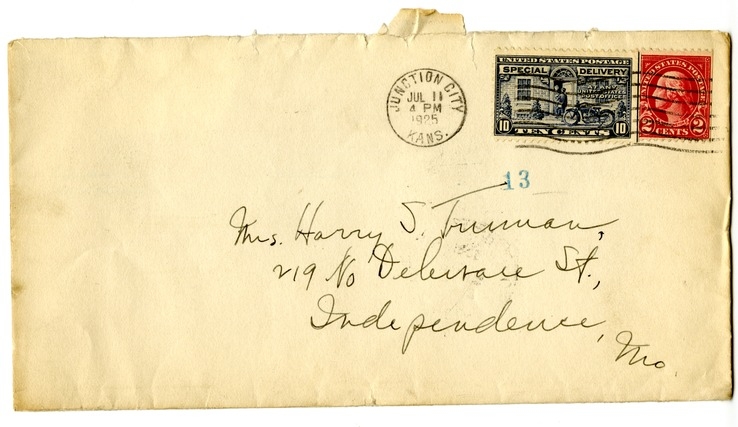 JUNCTION CITY
JUL 11
4 PM
1925
KANS.
UNITED STATES POSTAGE
SPECIAL DELIVERY
AT ANY
UNITED STATES
POST OFFICE
10 TEN CENTS 10
UNITED STATES POSTAGE
2 CENTS 2
13
Mrs. Harry S. Truman,
219 No Delaware St.,
Independence,
Mo.